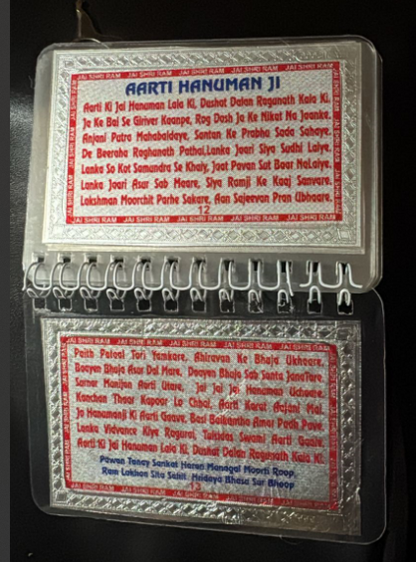 JAI SHRI RAM JAI SHRI RAM JAI SHRI RAM JAI SHRI RAM
AARTI HANUMAN JI
Aarti Ki Jai Hanuman Lala Ki, Dushat Dalan Ragunath Kala Ki.
Ja Ke Bal Se Giriver Kaanpe, Rog Dosh Ja Ke Nikat Na Jaanke.
Anjani Putra Mahabaldaye, Santan Ke Prabhu Sada Sahaye.
De Beeraha Raghunath Pathai,Lanka Jaari Siya Sudhi Laiye.
Lanka So Kot Samundra Se Khaiy, Jaat Pavan Sut Baar NaLaiye.
Lanka Jaari Asur Sab Maare, Siya Ramji Ke Kaaj Sanvare.
Lakshman Moorchit Parhe Sakare, Aan Sajeevan Pran Ubhaare.
12
JAI SHRI RAM JAI SHRI RAM JAI SHRI RAM JAI SHRI RAM
JAI SHRI RAM JAI SHRI RAM JAI SHRI RAM JAI SHRI RAM
Paith Pataal Tori Yamkare, Ahiravan Ke Bhuja Ukhaare.
Baayen Bhuja Asur Dal Mare, Daayen Bhuja Sab Santa JanaTare.
Surnar Munijan Aarti Utare, Jai Jai Jai Hanuman Uchaare.
Kanchan Thaar Kapoor Lo Chhai, Aarti Karat Aajani Mai.
Jo Hanumanji Ki Aarti Gaave, Basi Baikuntha Amar Padh Pave.
Lanka Vidvance Kiye Ragurai, Tulsidas Swami Aarti Gaaie.
Aarti Ki Jai Hanuman Lala Ki, Dushat Dalan Ragunath Kala Ki.
Pawan Tanay Sankat Haran Manggal Moorti Roop,
Ram Lakhan Sita Sahit Hridaya Bhasa Sur Bhoop
13
JAI SHRI RAM JAI SHRI RAM JAI SHRI RAM